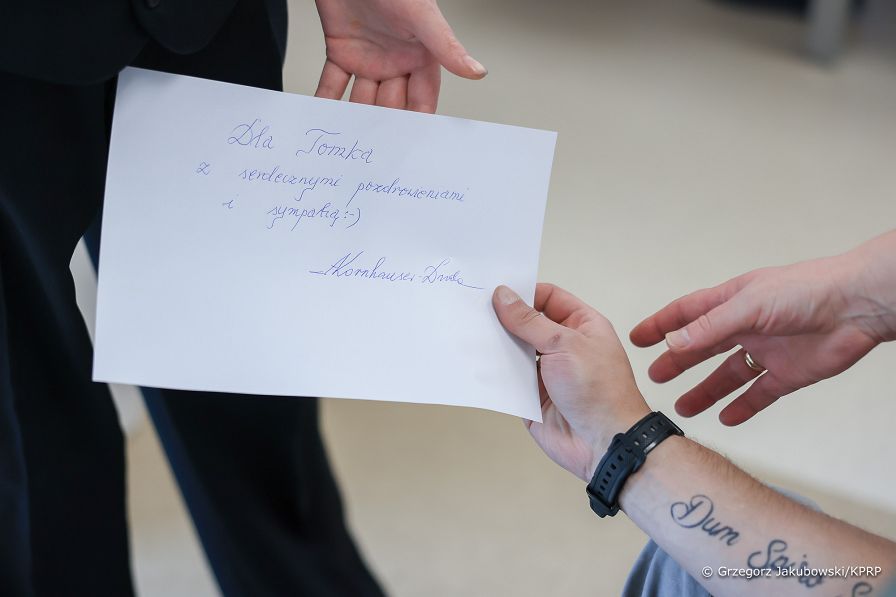 Dla Tomka
z serdecznymi pozdrowieniami
i sympatią :-)
AKornhauser-Duda
Dum Spiro S
© Grzegorz Jakubowski/KPRP